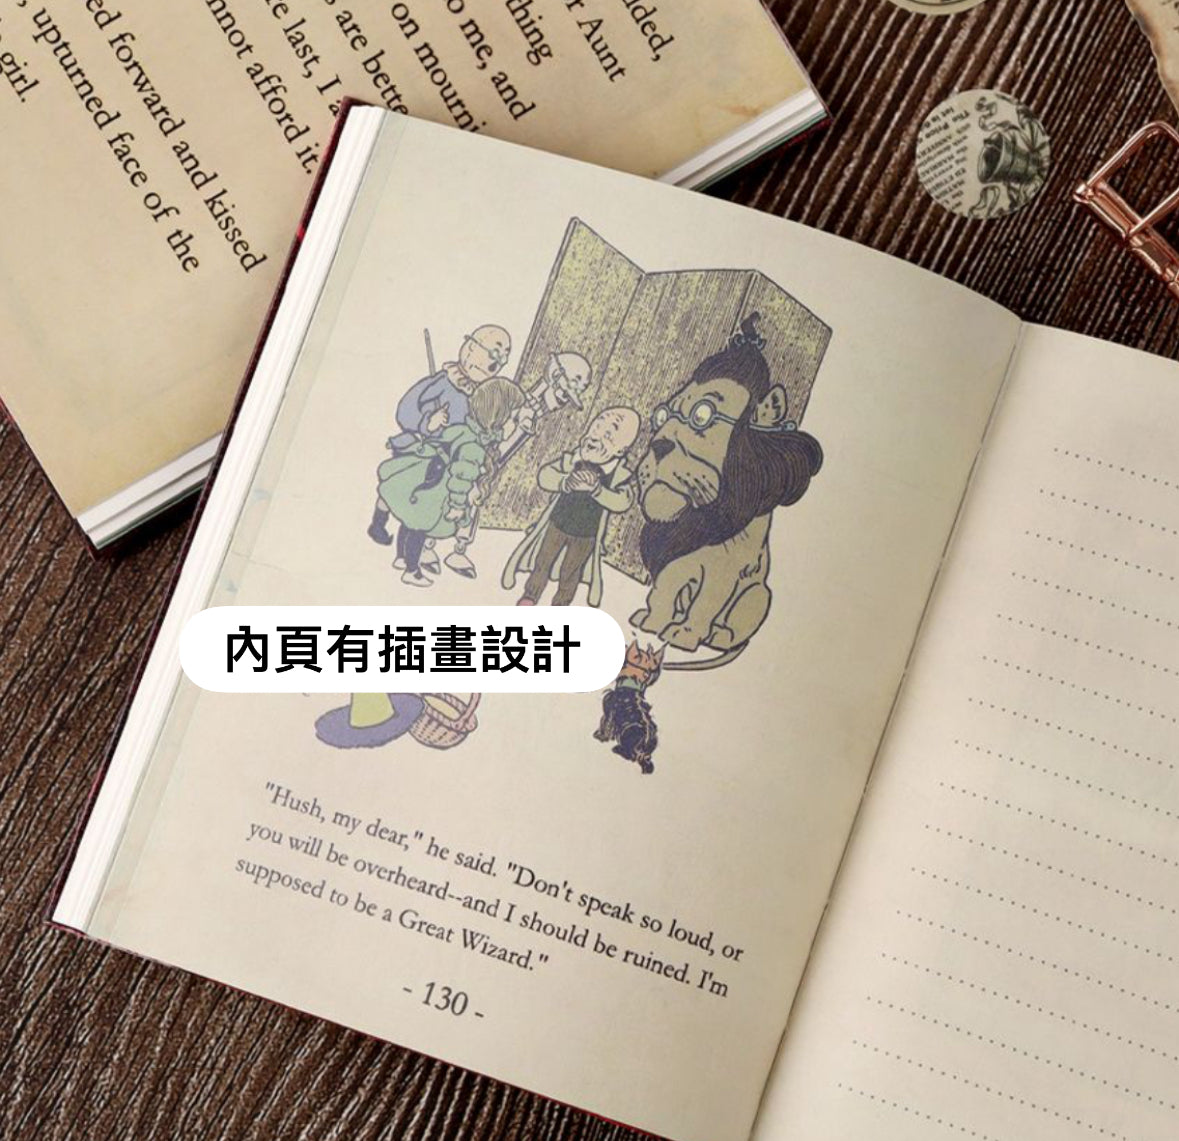 ided,
r Aunt
thing
o me, and
on mourni
s are bette
re last, I a
nnot afford it.
ed forward and kissed
, upturned face of the
girl.
內頁有插畫設計
"Hush, my dear," he said. "Don't speak so loud, or
you will be overheard--and I should be ruined. I'm
supposed to be a Great Wizard."
- 130 -